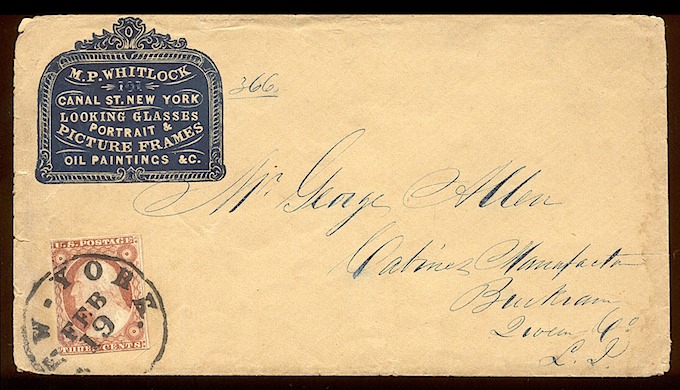 M.P. WHITLOCK
CANAL ST. NEW YORK
LOOKING GLASSES
PORTRAIT &
PICTURE FRAMES
OIL PAINTINGS &C.
366.
Mr George Allen
Cabinet Manufactr
Buckram
Queen Co
L. I.
U.S. POSTAGE
THREE CENTS
W-YORK
FEB
19